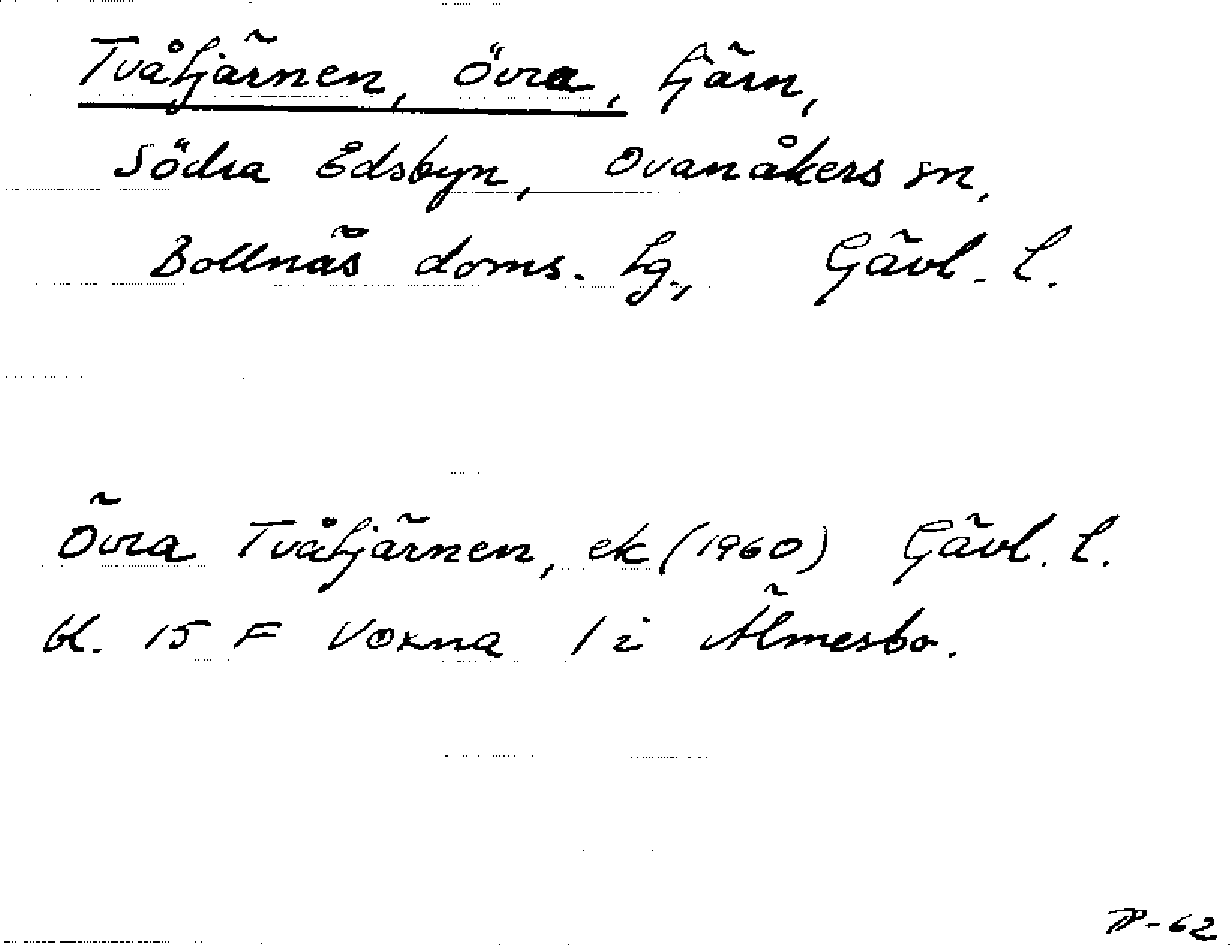 Tvåtjärnen, Övra, tjärn,
Södra Edsbyn, Ovanåkers sn,
Bollnäs doms. tg., Gävl. l.
Övra Tvåtjärnen, ek (1960) Gävl. l.
bl. 15 F Voxna / i Älmesbo.
-62